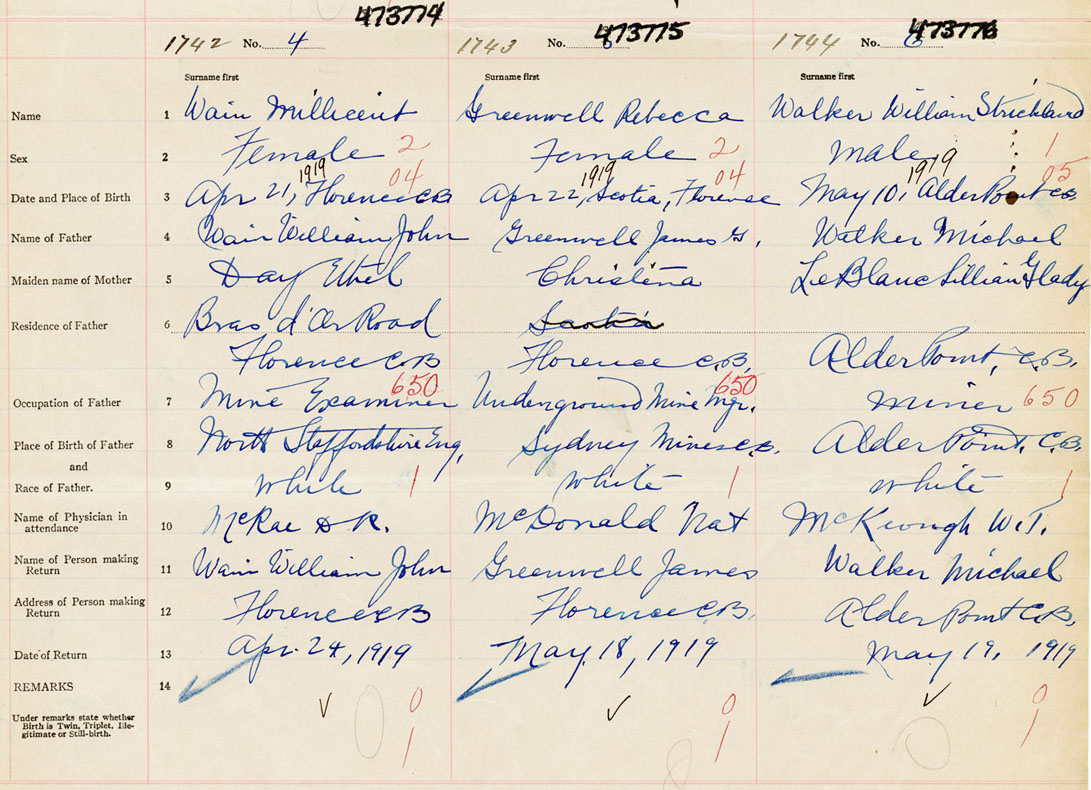 473774 473775 473776
1742 No. 4 1743 No. 1744 No. 6
Surname first Surname first Surname first
Name 1 Wain Millicent Greenwell Rebecca Walker William Strickland
Sex 2 Female 2 Female 2 Male 1
1919 1919 1919
04 04 05
Date and Place of Birth 3 Apr 21, Florence CB Apr 22, Scotia, Florence May 10, Alder Point CB
Name of Father 4 Wain William John Greenwell James G. Walker Michael
Maiden name of Mother 5 Day Ethel Christina LeBlanc Lillian Glady
Residence of Father 6 Bras d'Or Road Scotia
Florence C.B Florence C.B. Alder Point, C.B.
650 650
Occupation of Father 7 Mine Examiner Underground Mine Mgr. Miner 650
Place of Birth of Father 8 North Staffordshire Eng. Sydney Mines C.B. Alder Point. C.B.
and
Race of Father. 9 White 1 White 1 White 1
Name of Physician in
attendance 10 McRae D.R. McDonald Nat McKeough W.T.
Name of Person making
Return 11 Wain William John Greenwell James Walker Michael
Address of Person making
Return 12 Florence CB Florence CB. Alder Point C.B.
Date of Return 13 Apr. 24, 1919 May. 18, 1919 May 19, 1919
REMARKS 14
0 0 0
Under remarks state whether
Birth is Twin, Triplet, Ille-
gitimate or Still-birth.
1 1 1